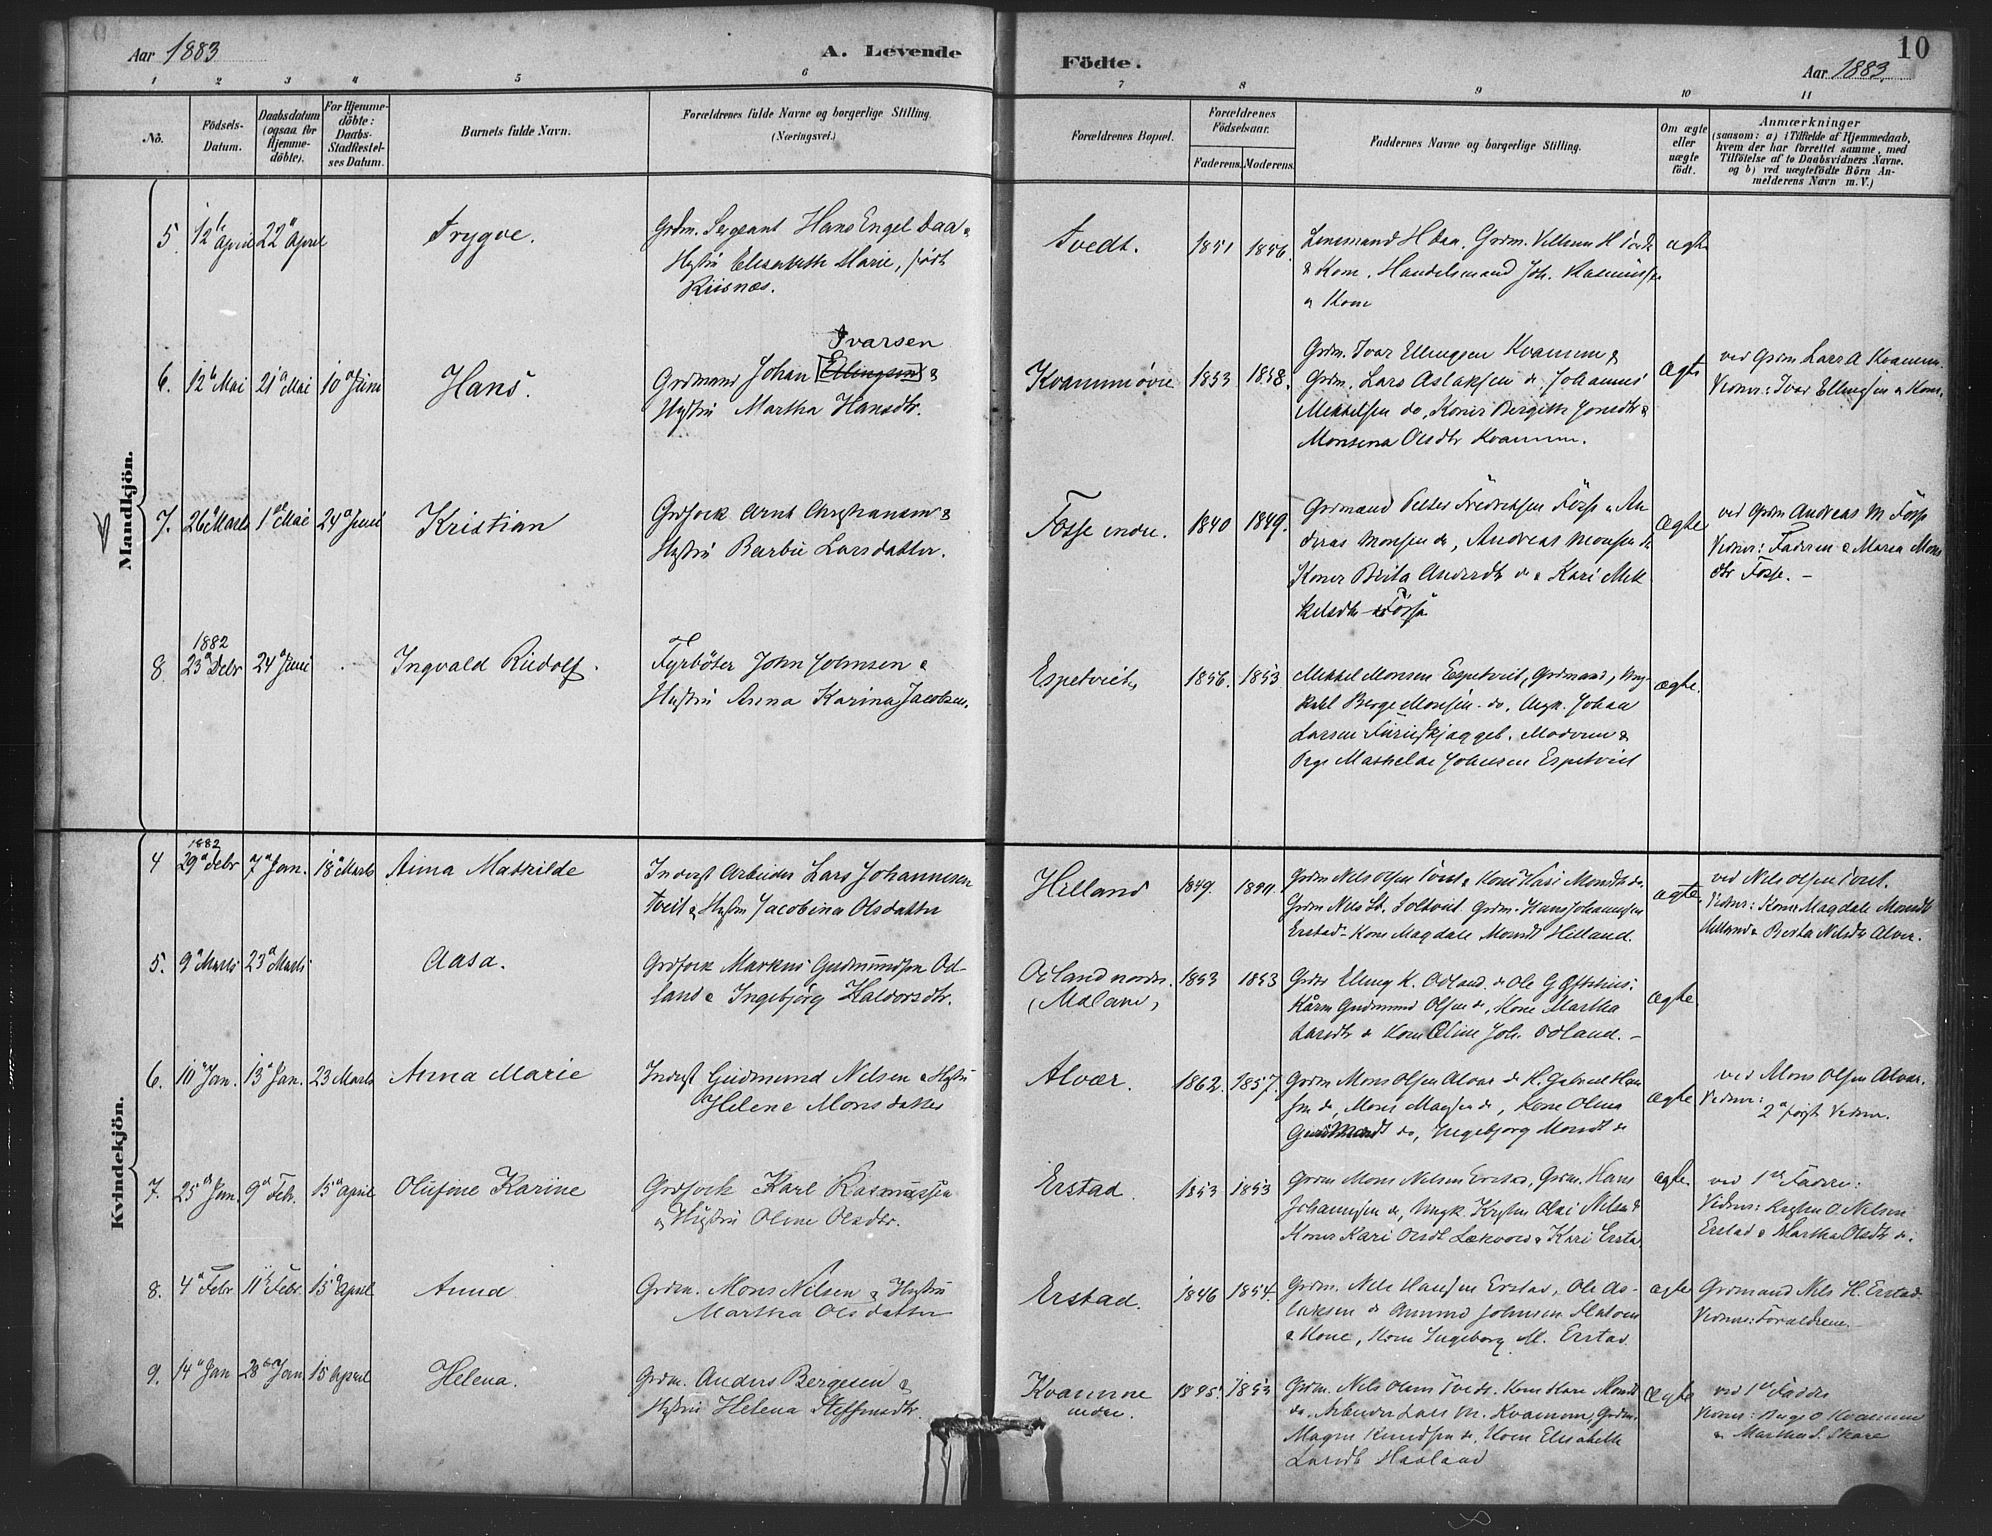 Aar 1883
A. Levende
Födte.
Aar 1883.
10
1 2 3 4 5 6 7 8 9 10 11
No.
Födsels-Datum.
Daabsdatum (ogsaa for Hjemme-döbte).
For Hjemme-döbte: Daabs-Stadfæstel-ses Datum.
Barnets fulde Navn.
Forældrenes fulde Navne og borgerlige Stilling.
(Næringsvei.)
Forældrenes Bopæl.
Forældrenes Födselsaar.
Faderens. Moderens.
Faddernes Navne og borgerlige Stilling.
Om ægte eller uægte født.
Anmærkninger
(saasom: a) i Tilfælde af Hjemmedaab,
hvem der har forrettet samme, med
Tilföielse af to Daabsvidners Navne.
og b) ved uægtefödte Börn An-
melderens Navn m. V.)
Mandkjön.
5 12te April 22 April Trygve. Grdm. Sergeant Hans Engel Daa &
Hustru Elisabeth Marie, født
Riisnæs.
Tvedt. 1851 1856. Lensmand H Daa. Grdm. Vilhelm H
& Kone. Handelsmand Joh. Rasmussen
& Kone
ægte
6. 12te Mai 21 Mai 10 Juni Hans. Grdmand Johan Ellingsen &
Ivarsen
Hustru Martha Hansdtr.
Kvamme øvre 1853 1858. Grdm. Ivar Ellingsen Kvamme &
Grdm. Lars Aslaksen do, Johannes
Mikkelsen do, Koner Bergitte Jonsdtr &
Monsena Olsdtr Kvamme.
ægte ved Grdm Lars A Kvamm.
Vidner: Ivar Ellingsen & Kone.
7. 26 Marts 1ste Mai 24 Juni Kristian Grdfolk Arnt Christiansen &
Hustru Barbu Larsdatter.
Fosse indre. 1840 1849. Grdmand Peder Fredriksen Fosse & An-
dreas Monsen do, Andreas Monsen do
Koner Brita Andersdtr do & Kari Mik-
kelsdtr Fosse
Ægte ved Grdm Andreas M Fosse
Vidner: Faderen & Maria Mons
dtr Fosse. –
8. 1882
23 Debr 24 Juni Ingvald Rudolf. Fyrbøter John Johnsen &
Hustru Anna Karina Jacobsen.
Espetveit 1856. 1853 Mikkel Monsen Espetveit, Grdmand, Ung-
karl Berge Monsen do, Ungk. Johan
Larsen Moderen &
Pige Mathilde Johnsen Espetveit
ægte.
Kvindekjön.
4 1882
29 Debr 7 Jan. 18 Marts Anna Mathilde Inderst Arbeider Lars Johannesen
Tveit & Hustru Jacobina Olsdatter
Helland 1849. Grdm Nils Olsen Tveit & Kone Kari Monsdtr do.
Grdm Nils Grdm. Hans Johannesen
Erstad – Kone Magdale Monsdt Helland.
ægte. ved Nils Olsen Tveit.
Vidner: Kone Magdale Monsdt
Helland & Berta Nilsdtr Alver.
5. 9 Marts 23 Marts Aasa. Grdfolk Markus Gudmundsen Od-
land & Ingebjørg Haldorsdtr.
Odland nordre. 1853 1853 Grdm Elling K. Odland. & Ole G
Gudmund Olsen do, Kone Martha
Larsdtr & Kone Oline Joh. Odland. –
ægte
6. 10 Jan. 13 Jan. 23 Marts Anna Marie Inderst Gudmund Nilsen & Hustru
Helene Monsdatter
Alvær. 1862. 1857. Grdm Mons Olsen Alvær & H. Gabriel Han-
sen do, Mons Magnesen do, Kone Olina
Gudmundsdt do, Ingebjørg Monsdt do
ægte ved Mons Olsen Alver.
Vidner: 2 først Vidner.
7. 25 Jan 9 Febr. 15 April Olufine Karine Grdfolk Karl Rasmussen
& Hustru Oline Olsdtr.
Erstad 1853 1853 Grdm Mons Nilsen Erstad, Grdm. Hans
Johannesen do, Ungk. Kristen Olai Nilsen &
Koner Kari Olsdt & Kari Erstad
ægte. ved 1ste Fadder:
Vidner: Kristen O Nilsen
Erstad & Martha Olsdtr do.
8. 4 Febr. 11 Febr. 15 April Anna Grdm. Mons Nilsen & Hustru
Martha Olsdatter
Erstad. 1846 1854. Grdm. Nils Hansen Erstad, Ole As-
laksen & Amund Johnsen
& Kone, Kone Ingeborg M. Erstad
ægte Grdmand Nils H. Erstad.
Vidner: Forældrene. –
9. 14 Jan 28 Jan 15 April Helena. Grdm. Anders Bergesen &
Hustru Helena Steffensdtr.
Kvamme
indre. 1853 Grdm. Nils Olsen Tvedt. Kone Kari Monsdt
do. Arbeider Lars M. Kvamme, Grdm.
Magne Knudsen do, Kone Elisabeth
Larsdt Haaland
ægte ved 1ste Fadder
Vidner: Berge O Kvamme
& Martha S. Skare